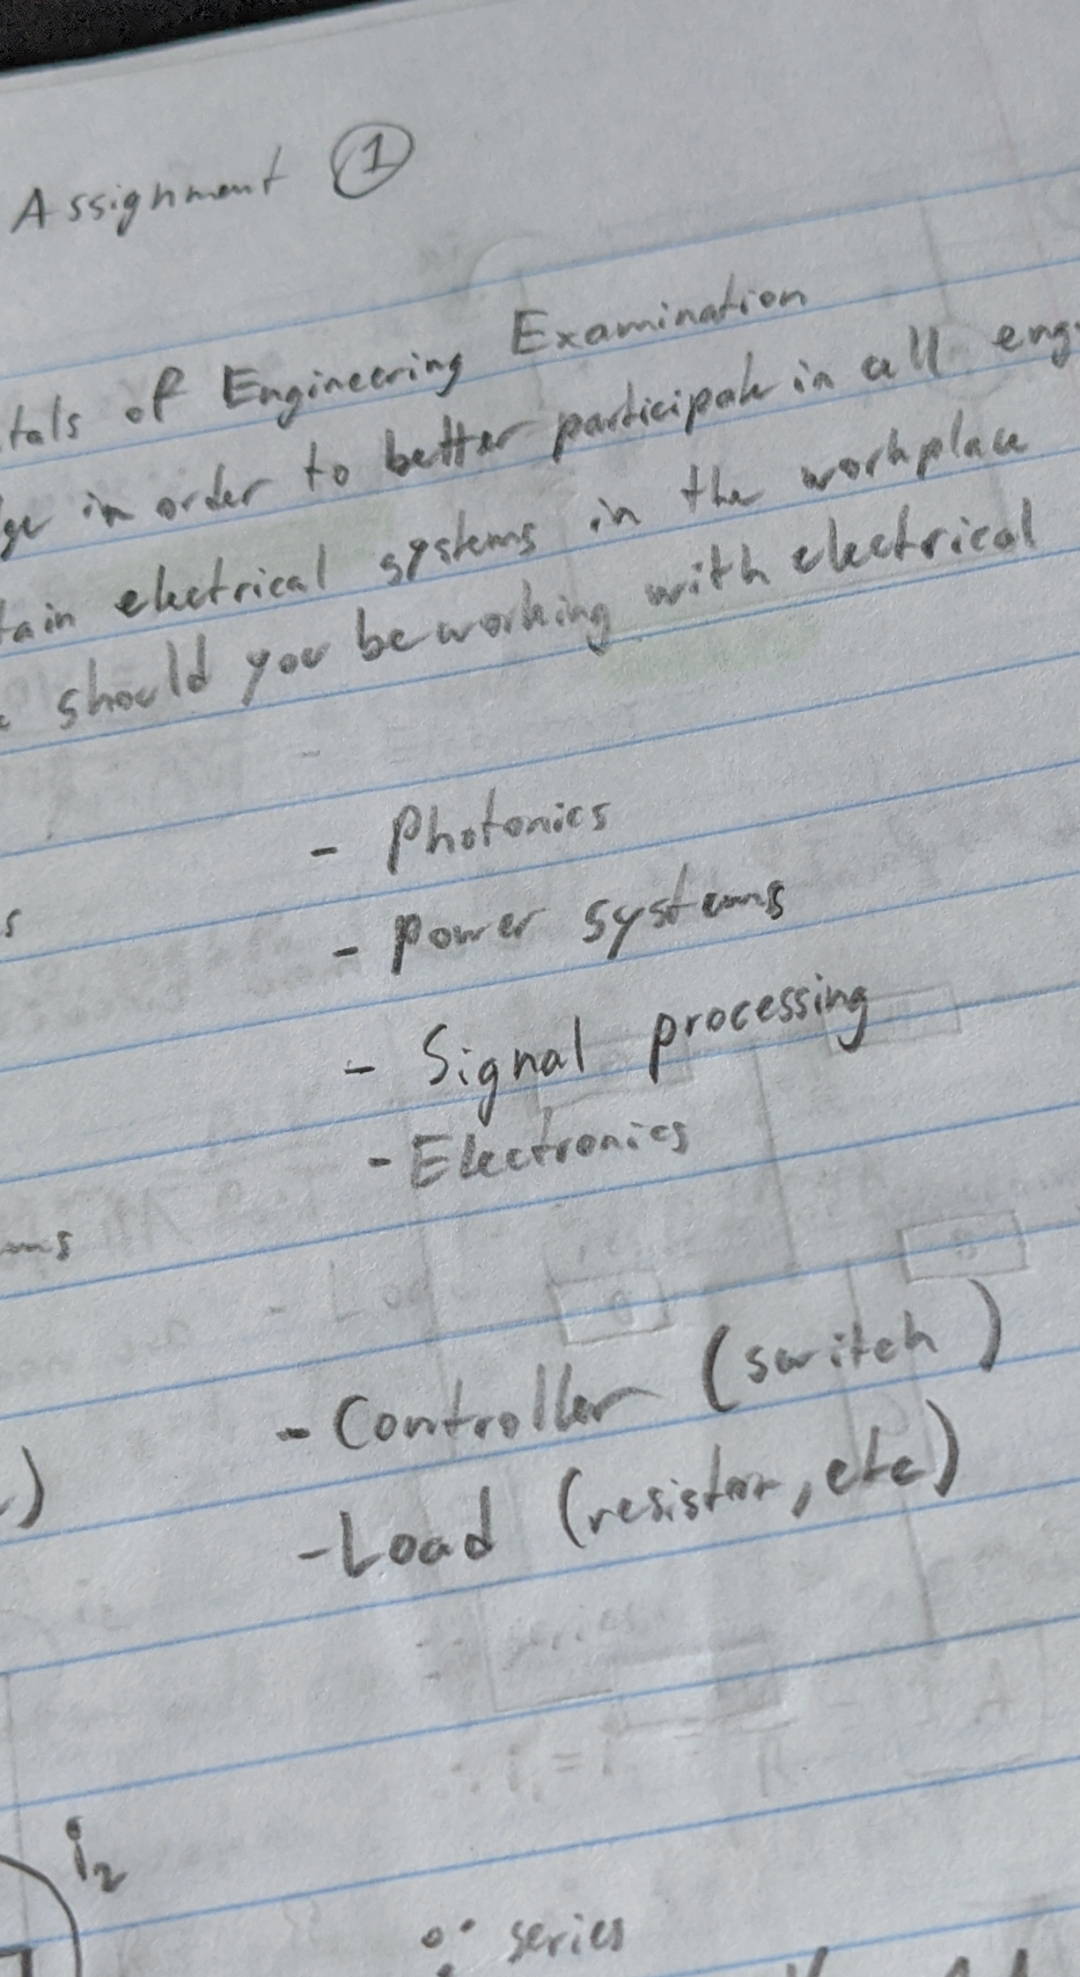 Assignment 1
tals of Engineering Examination
ge in order to better participate in all eng
tain electrical systems in the workplace
should you be working with electrical
- Photonics
s
- power systems
- Signal processing
- Electronics
ms
- Controller (switch)
)
- Load (resistor, etc)
i₂
∴ series